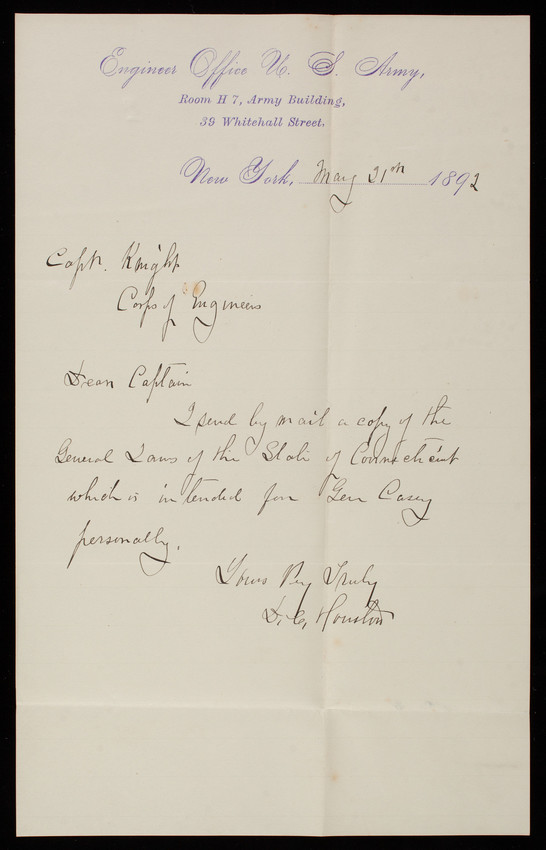 Engineer Office U. S. Army,
Room H 7, Army Building,
39 Whitehall Street.
New York, May 21st 1892
Capt. Knight
Corps of Engineers
Dear Captain
I send by mail a copy of the
General Laws of the State of Connecticut
which is intended for Gen Casey
personally.
Yours Very Truly
D. C. Houston